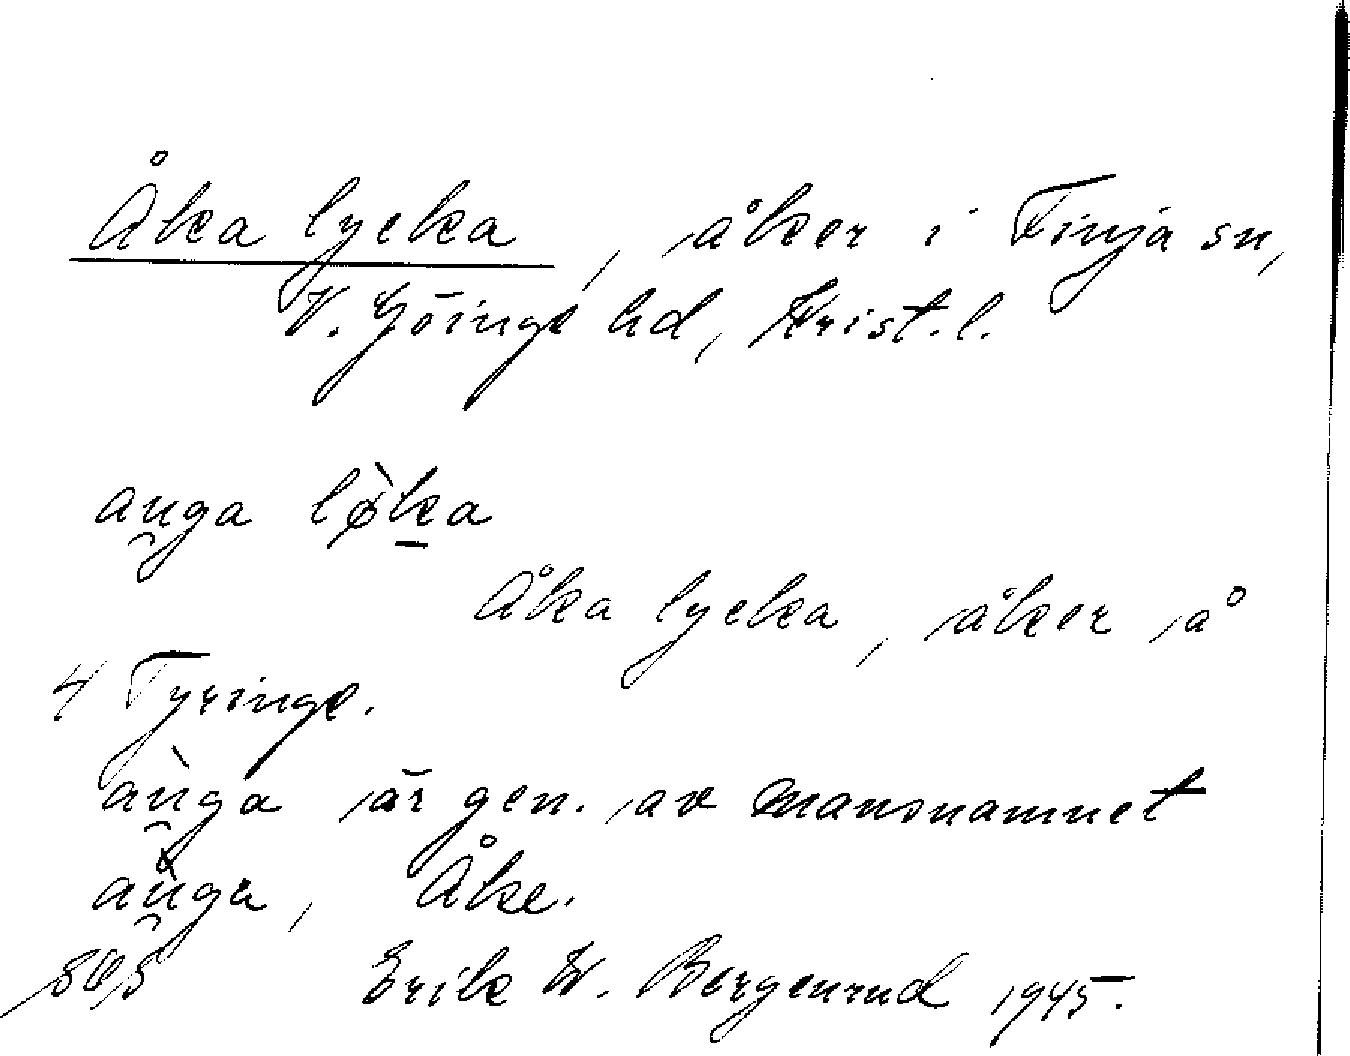 Åka lycka, åker i Finja sn,
V. Göinge hd, Krist. l.
au̯ga lø̀ka
Åka lycka, åker å
4 Tyringe.
àu̯ga är gen. av mansnamnet
àu̯ga, Åke.
Erik W. Bergenrud 1945.